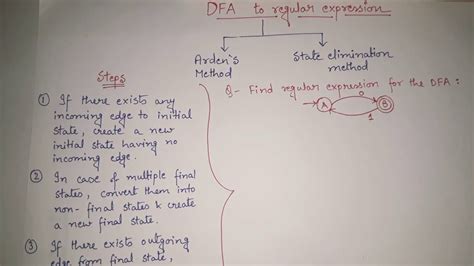 DFA to regular expression
Arden's
Method
State elimination
method
Steps
① If there exists any
incoming edge to initial
state, create a new
initial state having no
incoming edge.
② In case of multiple final
states, convert them into
non-final states & create
a new final state.
③ If there exists outgoing
edge from final state,
Q- Find regular expression for the DFA:
A
0
B
1